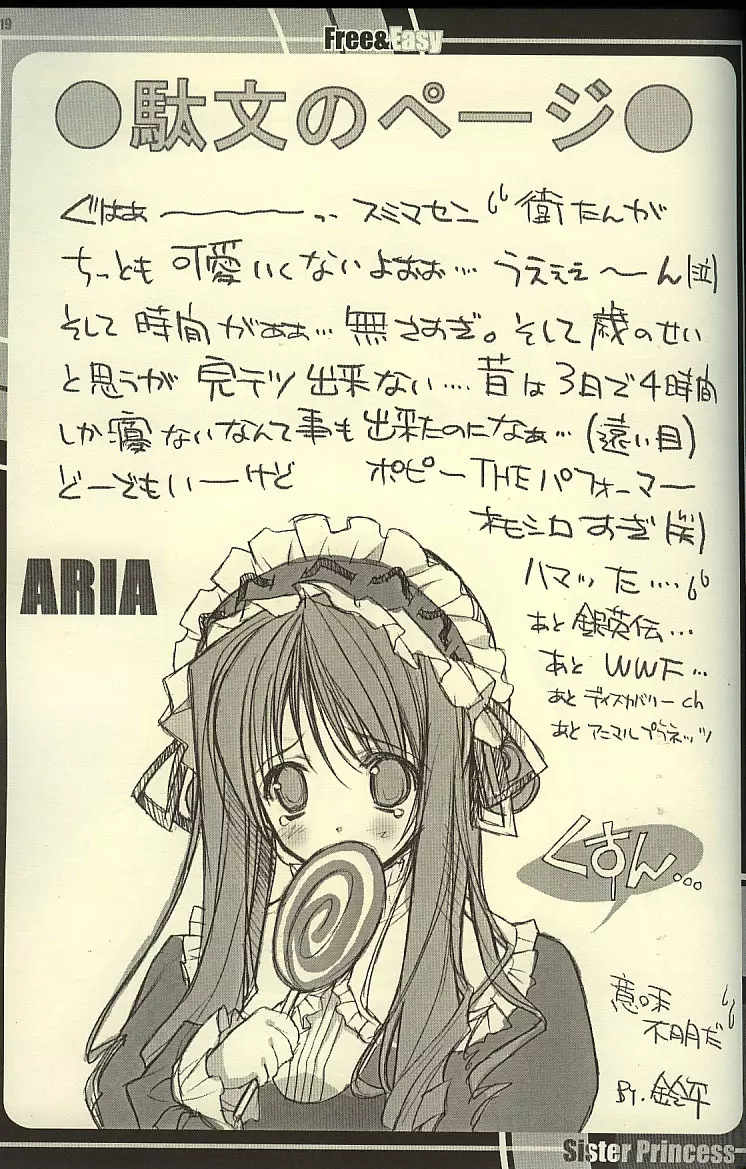 19
Free&Easy
●駄文のページ●
ぐはぁ〜〜〜〜っ スミマセン 衛たんが
ちっとも可愛いくないよおぉぉ… うえぇぇ〜ん(泣)
そして時間がぁぁ… 無さすぎ。そして歳のせい
と思うが 完テツ出来ない…. 昔は3日で4時間
しか寝ないなんて事も出来たのになぁ…(遠い目)
どーでもいーけど ポピーTHEパフォーマー
オモシロすぎ(笑)
ハマッた….
あと 銀英伝…
あと WWF…
あと ディスカバリーch
あと アニマルプラネッツ
ARIA
くすん…
意味
不明だ
By.鈴平
Sister Princess